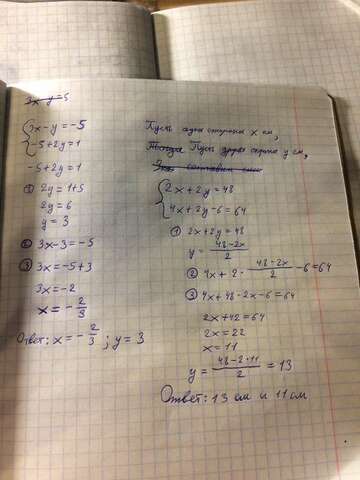 3x y = 5
3x - y = -5
-5 + 2y = 1
-5 + 2y = 1
① 2y = 1 + 5
2y = 6
y = 3
② 3x - 3 = -5
③ 3x = -5 + 3
3x = -2
x = - 2/3
Ответ: x = - 2/3 ; y = 3
Пусть одна сторона x см,
Пусть другая сторона y см,
составим
2x + 2y = 48
4x + 2y - 6 = 64
① 2x + 2y = 48
y = (48 - 2x)/2
② 4x + 2 · (48 - 2x)/2 - 6 = 64
③ 4x + 48 - 2x - 6 = 64
2x + 42 = 64
2x = 22
x = 11
y = (48 - 2 · 11)/2 = 13
Ответ: 13 см и 11 см